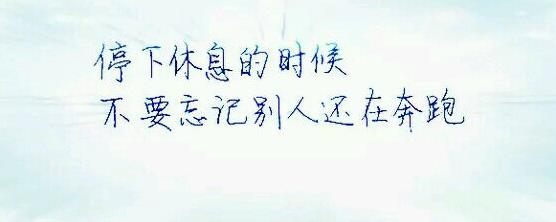 停下休息的时候
不要忘记别人还在奔跑